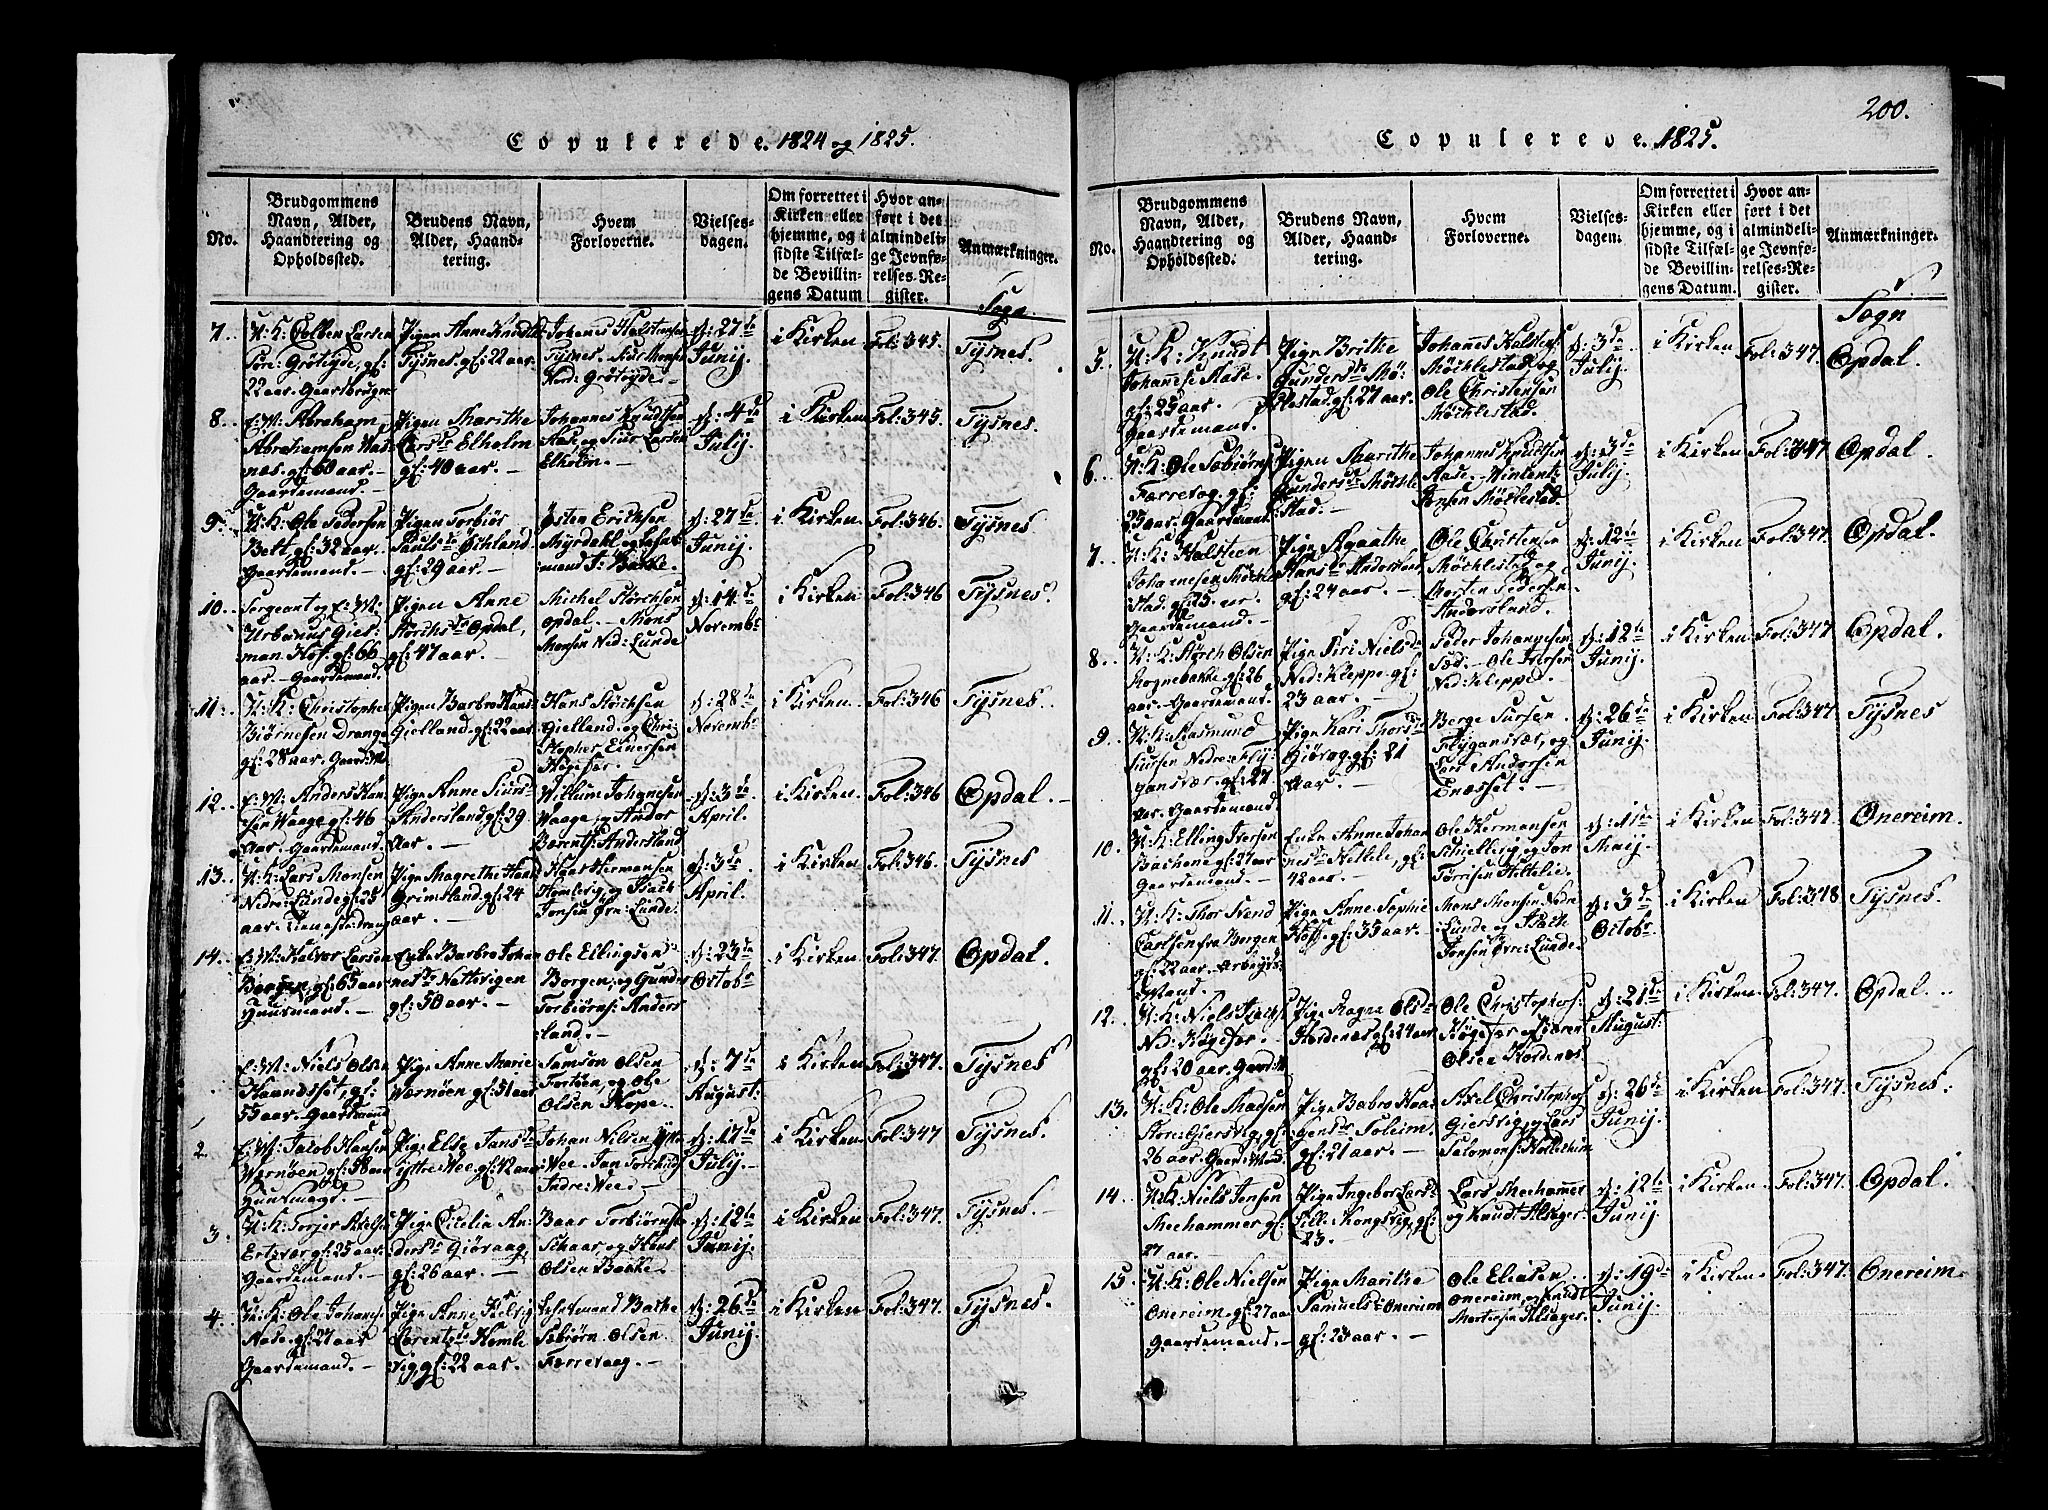 200.
Copulerede. 1824 og 1825.
No.
Brudgommens Navn, Alder, Haandtering og Opholdssted.
Brudens Navn, Alder, Haandtering.
Hvem Forloverne.
Vielsesdagen.
Om forrettet i Kirken eller hjemme, og i sidste Tilfælde Bevillingens Datum
Hvor anført i det almindelige Jevnførelses-Register.
Anmærkninger.
Sogn
7.
22 aar. Gaardbruger
Pigen Anne Knudsd.
Tysnes. gl: 22 aar.
Johanes Halstensen
Tysnes.
d: 27de
Junij.
i Kirken
Fol: 345.
Tysnes.
8.
E: M: Abraham
Abrahamsen
gl: 60 aar.
Gaardemand. –
Pigen Marithe
Larsda Elholm
gl: 40 aar. –
Johannes Knudsen
Aase, og Siur Larsen
Elholm. –
d: 4de
Julij.
i Kirken
Fol: 345.
Tysnes.
9.
U: K: Ole Pedersen
gl: 32 aar.
Gaardemand. –
Pigen Torbiør
gl: 29 aar.
Østen Erichsen
Myrdahl
d: 27de
Junij.
i Kirken
Fol: 346.
Tysnes.
10.
Sergeant og E: M:
Urbanus Giesman
Hof. gl: 66
aar. – Gaardemand.
Pigen Anne
Størchsda Opdal,
gl: 47 aar. –
Michel Størchsen
Opdal. – Mons
Monsen Ned: Lunde
d: 14de
Novembr
i Kirken
Fol: 346
Tysnes.
11.
U: K: Christopher
Biørnesen Drange
gl: 28 aar. Gaard: M
Pigen Barbro Hans
Gielland. gl: 22 aar.
Hans Størchsen
Gielland, og Christopher
Einersen
Høgefær.
d: 28de
Novembr
i Kirken
Fol: 346
Tysnes.
12.
E: M: Anders Hansen
Waage. gl: 46
Aar. Gaardemand.
Pige Anne Siurs
Andersland. gl: 29
Aar. –
Willum Johannesen
Waage, og Anders
Bærents: Andersland
d: 3de
April.
i Kirken.
Fol: 346
Opdal. –
13.
U: K: Lars Monsen
Nedre Lunde gl: 25
aar.
Pige Magrethe
Grimsland. gl: 24
aar. –
Hermansen
Homlevig, og Isach
Jonsen Øvr: Lunde.
d: 3de
April.
i Kirken
Fol: 346.
Tysnes.
14.
E: M: Halvor Larsen
Borgen, gl: 65 aar
Huusmand. –
Enke Barbro Johannesda
Nattvigen
gl: 50 aar. –
Ole Ellingsen
Borgen, og Gunder
Torbiørns: Andersland. –
d: 23de
Octobr
i Kirken
Fol: 347.
Opdal.
E: M: Niels Olsen
gl:
55 aar. Gaardmand
Pige Anne Marie
Wernøen gl: 51 aar
Samson Olsen
og Ole
Olsen Hope. –
d: 7de
August:
i Kirken
Fol: 347.
Tysnes
2
E: M: Jacob Hansen
Wernøen. gl: 58 aar
Huusmand. –
Pige Else Jansda
yttre Wee. gl: 42 aar
Johan Nilsen
Wee. Jan
Indre: Wee. –
d: 17de
Julij.
i Kirken
Fol: 347
Tysnes.
3.
U: K: Torjer Axelsen
Ertsvær gl: 25 aar.
Gaardemand. –
Pige Cicelia Andersda
Giøraag,
gl: 26 aar. –
Baar Torbiørnsen
Schaar, og Hans
Olsen Bakke. –
d: 12te
Junij.
i Kirken
Fol: 347.
Tysnes.
4.
U: K: Ole Johans:
Aase. gl: 27 aar
Gaardemand. –
Pige Anne Helvig
Lorentsda Homlevig,
gl: 22 aar. –
Endremand Bakke
Osbiørn Olsen
Færrevaag. –
d: 26de
Junij.
i Kirken
Fol: 347.
Tysnes.
Copulerede. 1825.
No.
Brudgommens Navn, Alder, Haandtering og Opholdssted.
Brudens Navn, Alder, Haandtering.
Hvem Forloverne.
Vielsesdagen.
Om forrettet i Kirken eller hjemme, og i sidste Tilfælde Bevillingens Datum.
Hvor anført i det almindelige Jevnførelses-Register.
Anmærkninger.
Sogn
5.
U: K: Knudt
Johannese Aase.
gl: 25 aar.
Gaardemand.
Pige Brithe
Gundersda Møchlestad
gl: 27 aar.
Johannes Halstens:
Møchlestad og
Ole Christensen
Møchlestad.
d: 3de
Julij.
i Kirken
Fol: 347.
Opdal.
6.
U: K: Ole Osbiørns
Færrevog. gl:
23 aar. Gaardemand
Pigen Marithe
Gundersda Møchlestad. –
Johannes Knudsen
Aase. – Wintents
Jonsen Møchlestad.
d: 3de
Julij.
i Kirken
Fol: 347
Opdal
7.
U: K: Halsteen
Johannesen Møchlestad.
gl: 25. aar.
Gaardemand. –
Pige Agathe
Hansda Andersland,
gl: 24 aar. –
Ole Christensen
Møchlestad og
Morten Pedersen
Andersland.
d: 12te
Junij.
i Kirken
Fol: 347.
Opdal.
8.
U: K: Størch Olsen
Rognebakke. gl: 26
aar. Gaardemand.
Pige Siri Nielsda
Ned: Kleppe. gl:
23 aar. –
Peder Johannesen
Sæd. – Ole Iversen
Ned: Kleppe.
d: 12te
Junij.
i Kirken
Fol: 347
Opdal.
9.
U: K: Rasmund
Siursen Nedre: Flygansvær,
gl: 27
aar. Gaardemand.
Pige Kari Thorsda
Giøvog. gl: 21
Aar. –
Berge Siursen
Flygansvær, og
Lars Andersen
Enæsset. –
d: 26de
Junij.
i Kirken
Fol: 347.
Tysnes
10.
U: K: Elling Iversen
Bachene gl: 27 aar
Gaardemand. –
Enke Anne Johannesda
Hellele, gl:
42 aar. –
Ole Hermansen
Schielbrej og Jon
Tørrisen Hellelie.
d: 11te
Maij.
i Kirken
Fol: 347.
Onereim.
11.
U: K: Thor Svend
Carlsen fra Bergen
gl: 22 aar. Arbeyds
Mand.
Pige Anne Sophie
Hoff. gl: 35 aar. –
Mons Monsen Nedre
Lunde og Isach
Jonsen Øvre: Lunde.
d: 3de
Octobr
i Kirken
Fol: 348
Tysnes.
12.
U: K: Niels
Ned: Høgefær. –
gl: 20 aar. Gaard: M
Pige Ragna Olsda
Hordenæs gl: 24 aar
Ole Christophers:
Høgefær og Søren
Olsen Hordenæs
d: 21de
August:
i Kirken
Fol: 347.
Opdal.
13.
U: K: Ole Madsen
Store: Giersvig. gl:
26 aar. Gaard: Mand.
Pige Babro Haagensda
Soleim.
gl: 21 aar. –
Axel Christophers
Giersvig, og Lars
Salomons:
d: 26de
Junij.
i Kirken
Fol: 347.
Tysnes.
14.
U: K: Niels Jensen
Meehammer gl:
27 aar.
Pige Ingebor Larsda
Lille Kongsvig. gl:
23. –
Lars Meehammer
og Knudt Alsager
d: 12te
Junij
i Kirken
Fol: 347.
Opdal.
15.
U: K: Ole Nielsen
Onereim. gl: 27 aar
Gaardemand. –
Pige Marithe
Samuelsda Onereim
gl: 23 aar. –
Ole Eliasen
Onereim, og Knudt
Mortensen Alsager.
d: 19de
Junij.
i Kirken
Fol: 347.
Onereim.